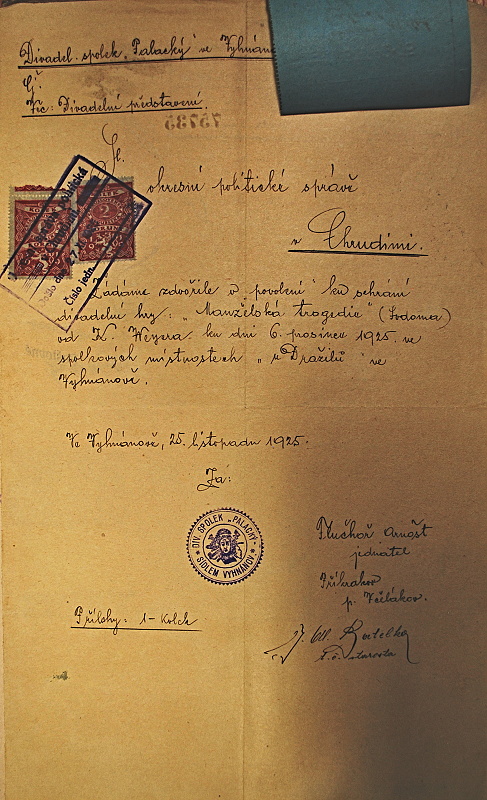 Divadel. spolek „Palacký" ve Vyhnán
Čj.
Věc: Divadelní představení.
75735
Sl.
okresní politické správě
v Chrudimi.
2
Číslo jedn.
Žádáme zdvořile o povolení ku sehrání
divadelní hry: „Manželská tragedie" (Sodoma)
od K. Weyera ku dni 6. prosince 1925. ve
spolkových místnostech „u Dražilů" ve
Vyhnánově.
Ve Vyhnánově, 25. listopadu 1925.
Za:
DIV. SPOLEK „PALACKÝ"
SÍDLEM VYHNÁNOV
Tluchoř Arnošt
jednatel
Příkrakov
p. Včelákov.
Přílohy: 1 - Kolek
t.č. starosta